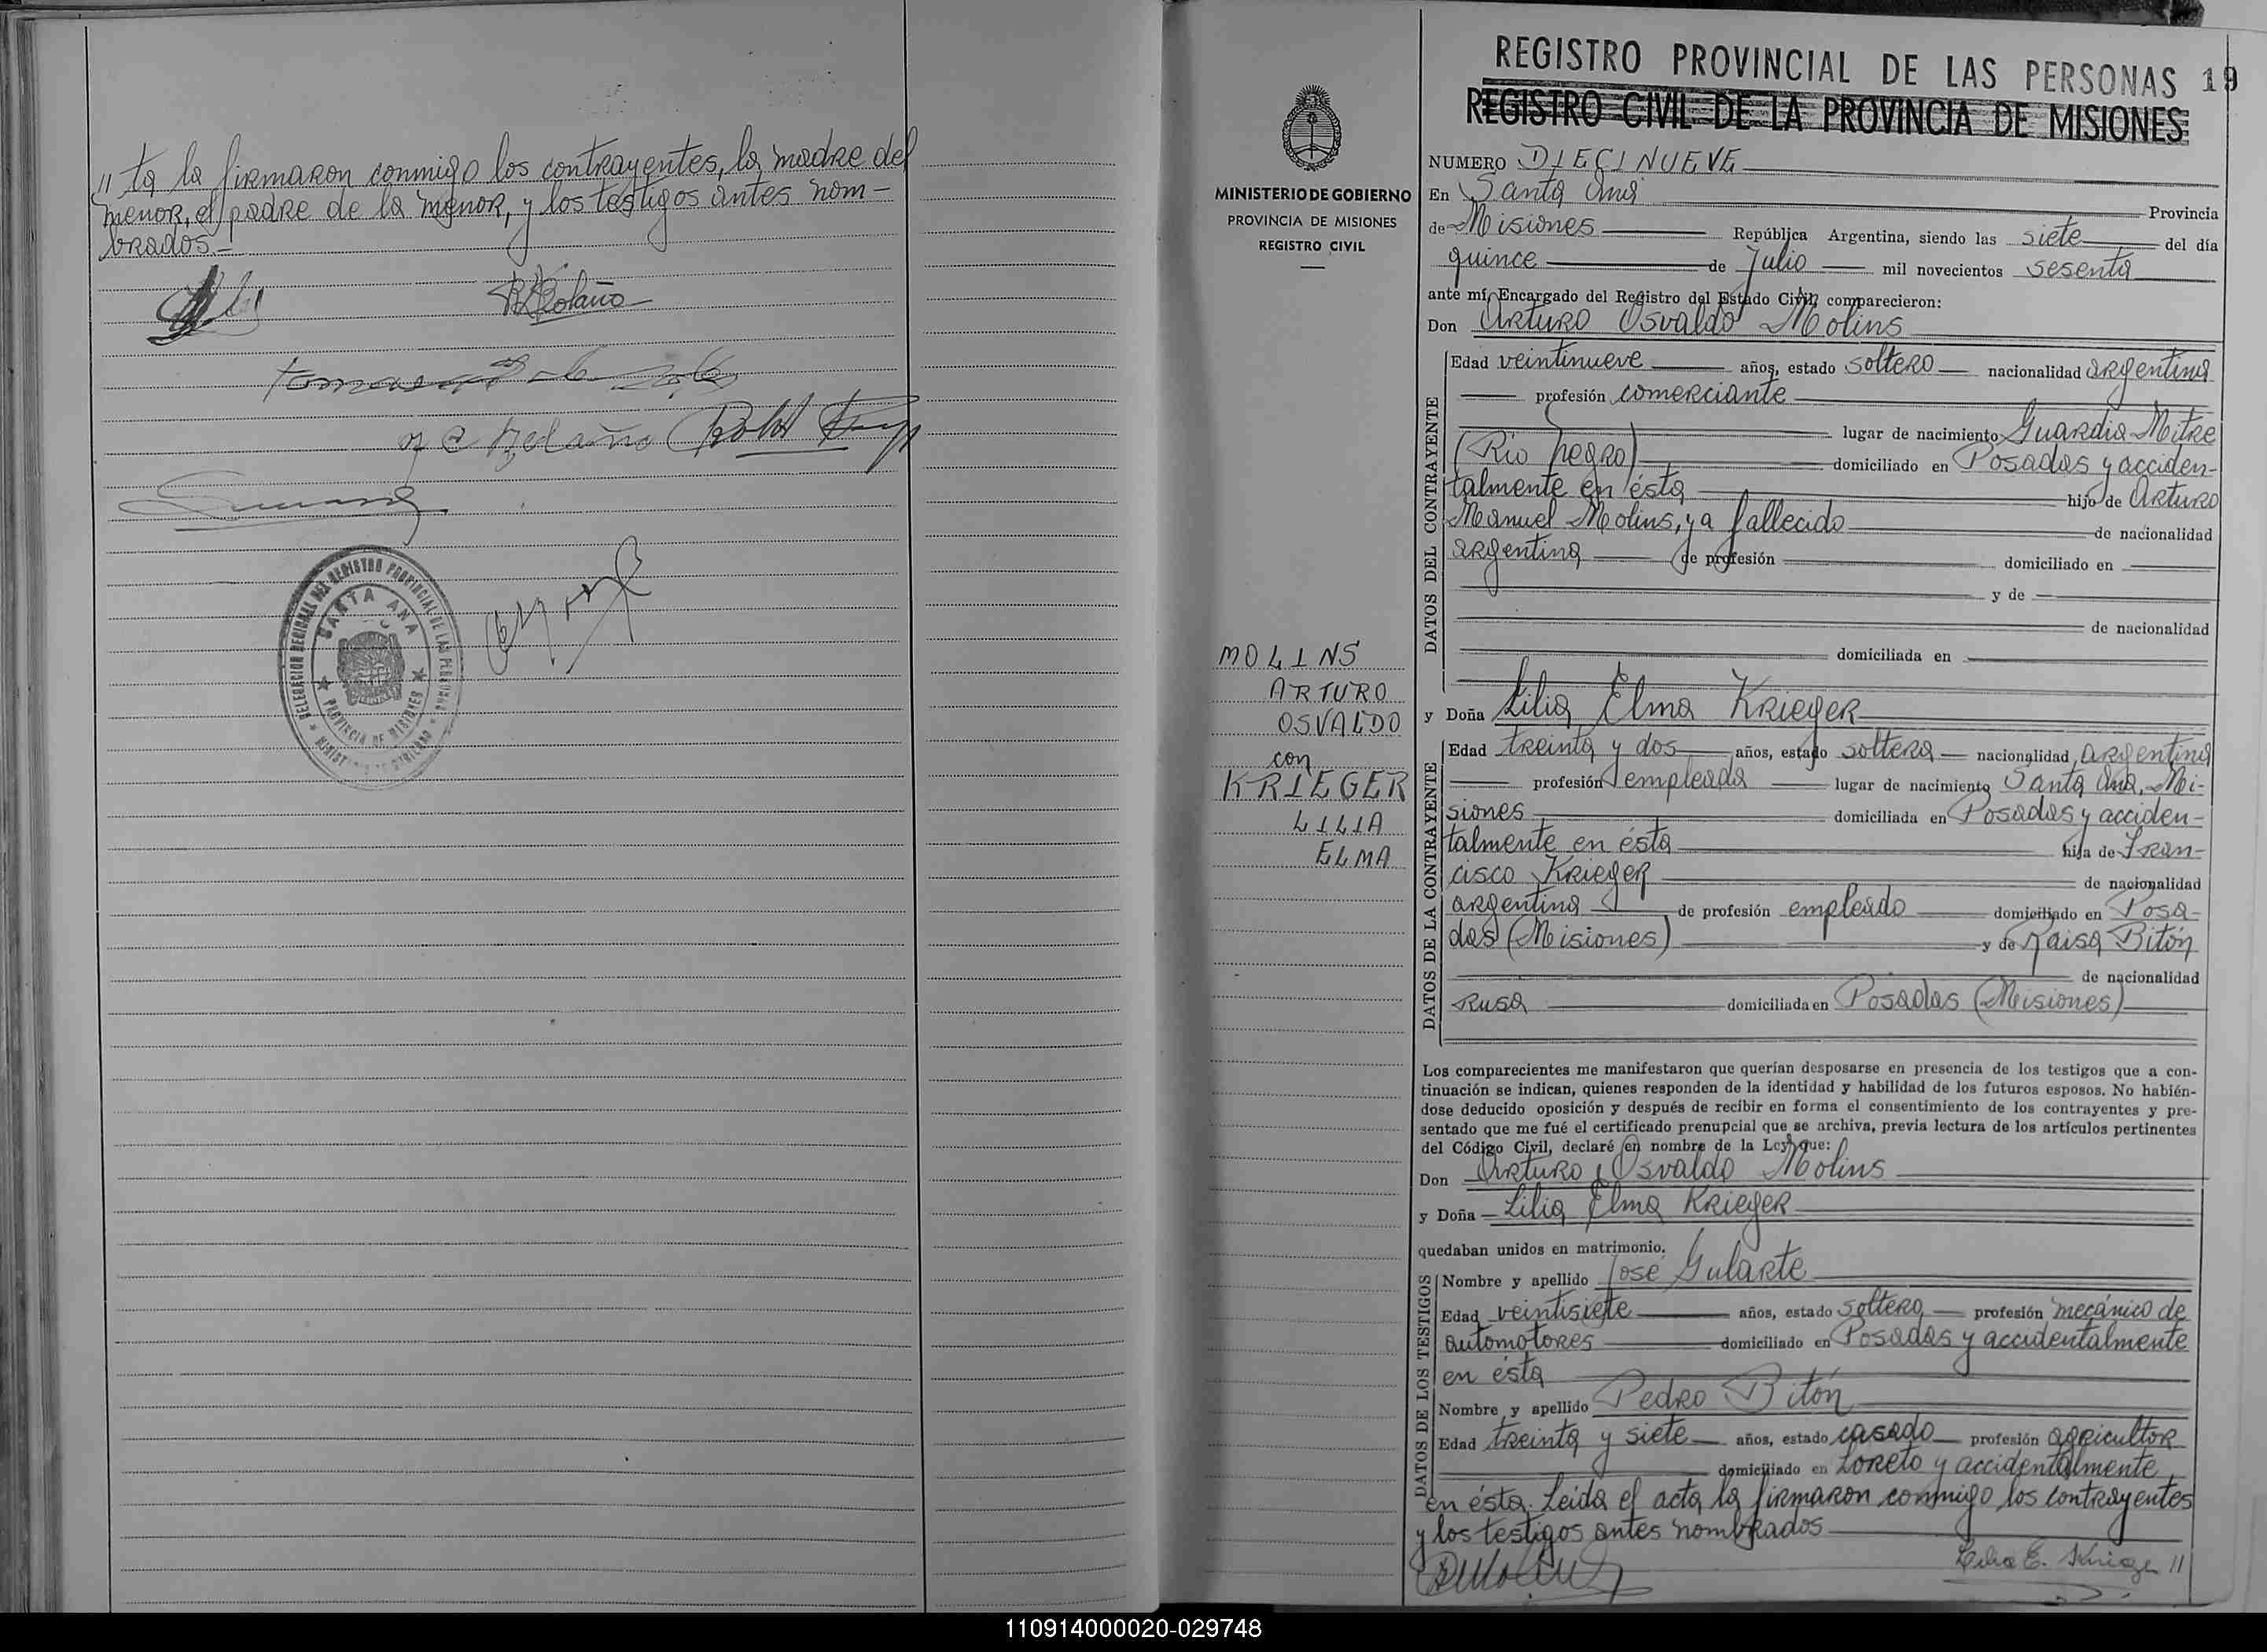 " ta la firmaron conmigo los contrayentes, la madre del
menor, el padre de la menor, y los testigos antes nom-
brados.-
Bolaño
DELEGACION REGIONAL DEL REGISTRO PROVINCIAL DE LAS PERSONAS
SANTA ANA
PROVINCIA DE MISIONES
REGISTRO PROVINCIAL DE LAS PERSONAS 19
REGISTRO CIVIL DE LA PROVINCIA DE MISIONES
MINISTERIO DE GOBIERNO
PROVINCIA DE MISIONES
REGISTRO CIVIL
MOLINS
ARTURO
OSVALDO
con
KRIEGER
LILIA
ELMA
NUMERO DIECINUEVE
En Santa Ana Provincia
de Misiones República Argentina, siendo las siete del día
quince de Julio mil novecientos sesenta
ante mí, Encargado del Registro del Estado Civil, comparecieron:
Don Arturo Osvaldo Molins
DATOS DEL CONTRAYENTE
Edad veintinueve años, estado soltero nacionalidad argentina
profesión comerciante
lugar de nacimiento Guardia Mitre
(Rio Negro) domiciliado en Posadas y acciden-
talmente en ésta hijo de Arturo
Manuel Molins, ya fallecido de nacionalidad
argentina de profesión domiciliado en
y de
de nacionalidad
domiciliada en
y Doña Lilia Elma Krieger
DATOS DE LA CONTRAYENTE
Edad treinta y dos años, estado soltera nacionalidad argentina
profesión empleada lugar de nacimiento Santa Ana, Mi-
siones domiciliada en Posadas y acciden-
talmente en ésta hija de Fran-
cisco Krieger de nacionalidad
argentina de profesión empleado domiciliado en Posa-
das (Misiones) y de Raisa Bitón
de nacionalidad
rusa domiciliada en Posadas (Misiones)
Los comparecientes me manifestaron que querían desposarse en presencia de los testigos que a con-
tinuación se indican, quienes responden de la identidad y habilidad de los futuros esposos. No habién-
dose deducido oposición y después de recibir en forma el consentimiento de los contrayentes y pre-
sentado que me fué el certificado prenupcial que se archiva, previa lectura de los artículos pertinentes
del Código Civil, declaré en nombre de la Ley que:
Don Arturo Osvaldo Molins
y Doña Lilia Elma Krieger
quedaban unidos en matrimonio.
DATOS DE LOS TESTIGOS
Nombre y apellido José Gularte
Edad veintisiete años, estado soltero profesión mecánico de
automotores domiciliado en Posadas y accidentalmente
en ésta
Nombre y apellido Pedro Bitón
Edad treinta y siete años, estado casado profesión agricultor
domiciliado en Loreto y accidentalmente
en ésta. Leída el acta la firmaron conmigo los contrayentes
y los testigos antes nombrados
Lilia E. Krieger "
110914000020-029748